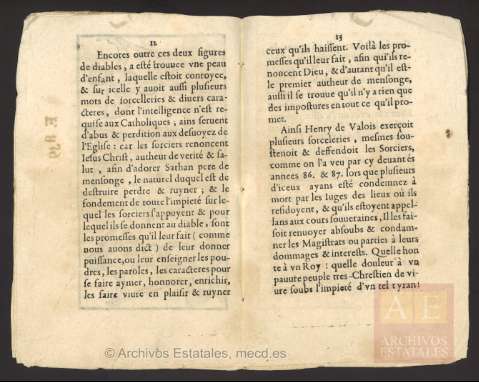 12
Encores outre ces deux figures
de diables, a esté trouuee vne peau
d'enfant, laquelle estoit conroyee,
& sur icelle y auoit aussi plusieurs
mots de sorcelleries & diuers cara-
cteres, dont l'intelligence n'est re-
quise aux Catholiques, ains seruent
d'abus & perdition aux desuoyez de
l'Eglise: car les sorciers renoncent
Iesus Christ, autheur de verité & sa-
lut, afin d'adorer Sathan pere de
mensonge, le naturel duquel est de
destruire perdre & ruyner; & le
fondement de toute l'impieté sur le-
quel les sorciers s'appuyent & pour
lequel ils se donnent au diable, sont
les promesses qu'il leur fait (comme
nous auons dict) de leur donner
puissance, ou leur enseigner les pou-
dres, les paroles, les caracteres pour
se faire aymer, honnorer, enrichir,
les faire viure en plaisir & ruyner
13
ceux qu'ils haissent. Voilà les pro-
messes qu'il leur fait, afin qu'ils re-
noncent Dieu, & d'autant qu'il est-
le premier autheur de mensonge,
aussi il se trouue qu'il n'y a rien que
des impostures en tout ce qu'il pro-
met.
Ainsi Henry de Valois exerçoit
plusieurs sorceleries, mesmes sou-
stenoit & deffendoit les Sorciers,
comme on l'a veu par cy deuant és
annees 86. & 87. lors que plusieurs
d'iceux ayans esté condemnez à
mort par les Iuges des lieux où ils
residoyent, & qu'ils estoyent appel-
lans aux cours souueraines, Il les fai-
soit renuoyer absoubs & condam-
ner les Magistrats ou parties à leurs
dommages & interests. Quelle hon
te à vn Roy: quelle douleur à vn
pauure peuple tres-Chrestien de vi-
ure soubs l'impieté d'vn tel tyran!
© Archivos Estatales, mecd.es
AE
ARCHIVOS
ESTATALES